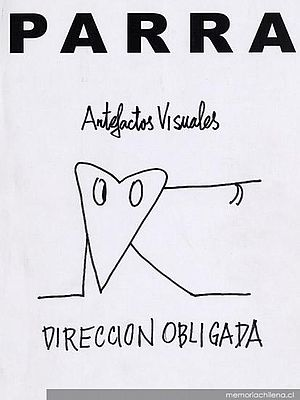 PARRA
Artefactos Visuales
DIRECCION OBLIGADA
memoriachilena.cl